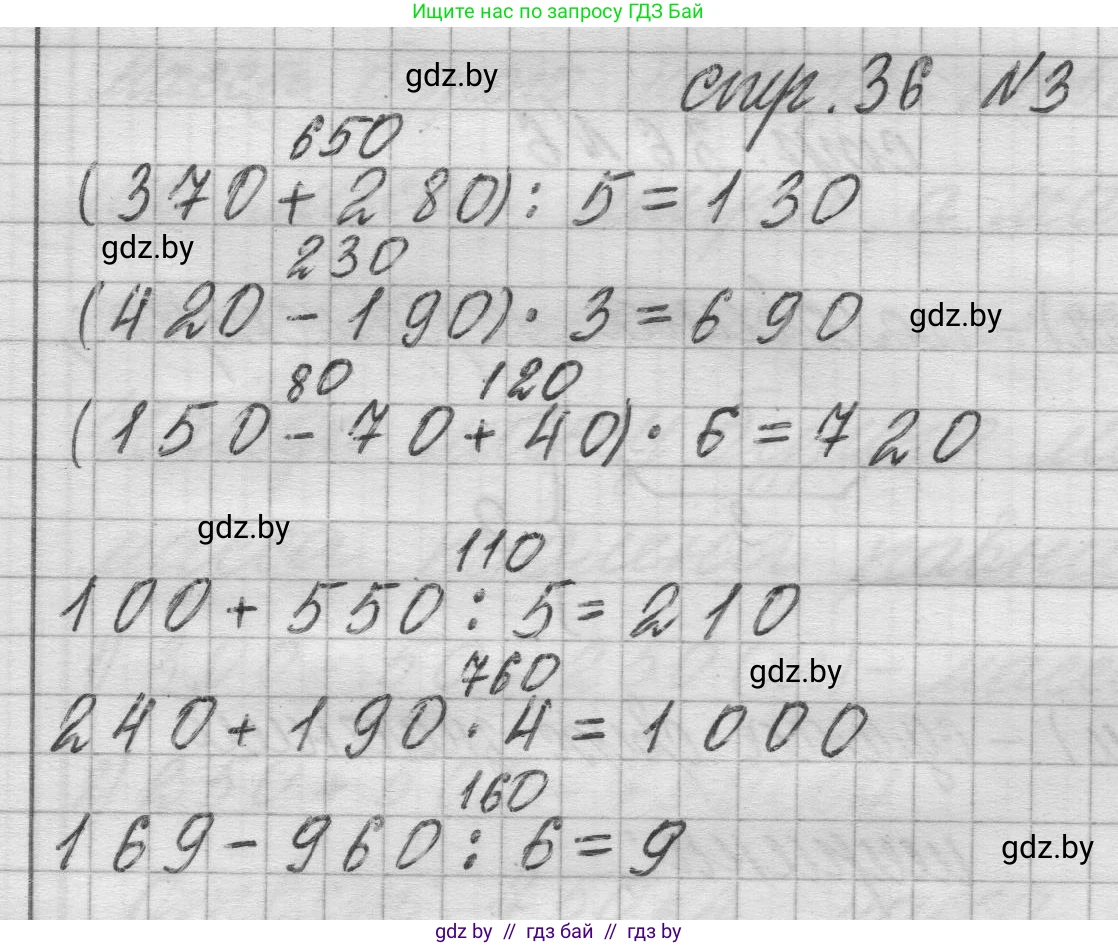 Ищите нас по запросу ГДЗ Бай
gdz.by
стр. 36 №3
650
(370 + 280) : 5 = 130
gdz.by
230
(420 - 190) · 3 = 690
gdz.by
80 120
(150 - 70 + 40) · 6 = 720
gdz.by
110
100 + 550 : 5 = 210
760
gdz.by
240 + 190 · 4 = 1000
160
169 - 960 : 6 = 9
gdz.by
gdz.by // гдз бай // гдз by